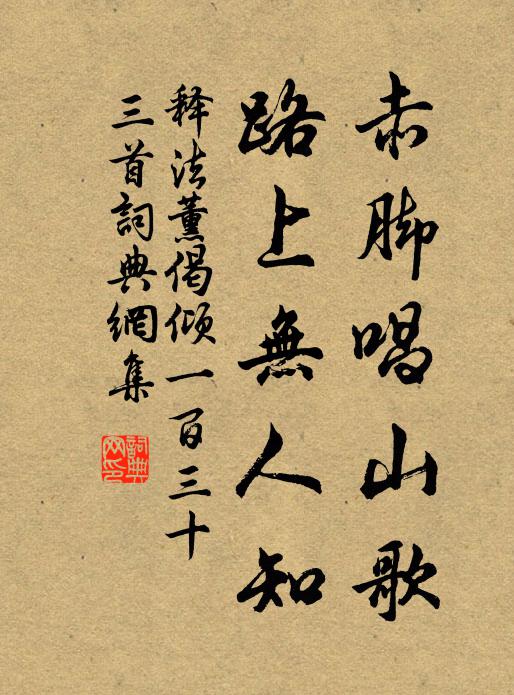 赤脚唱山歌
路上無人知
释法薰偈倾一百三十
三首詞典網集
詞典网印